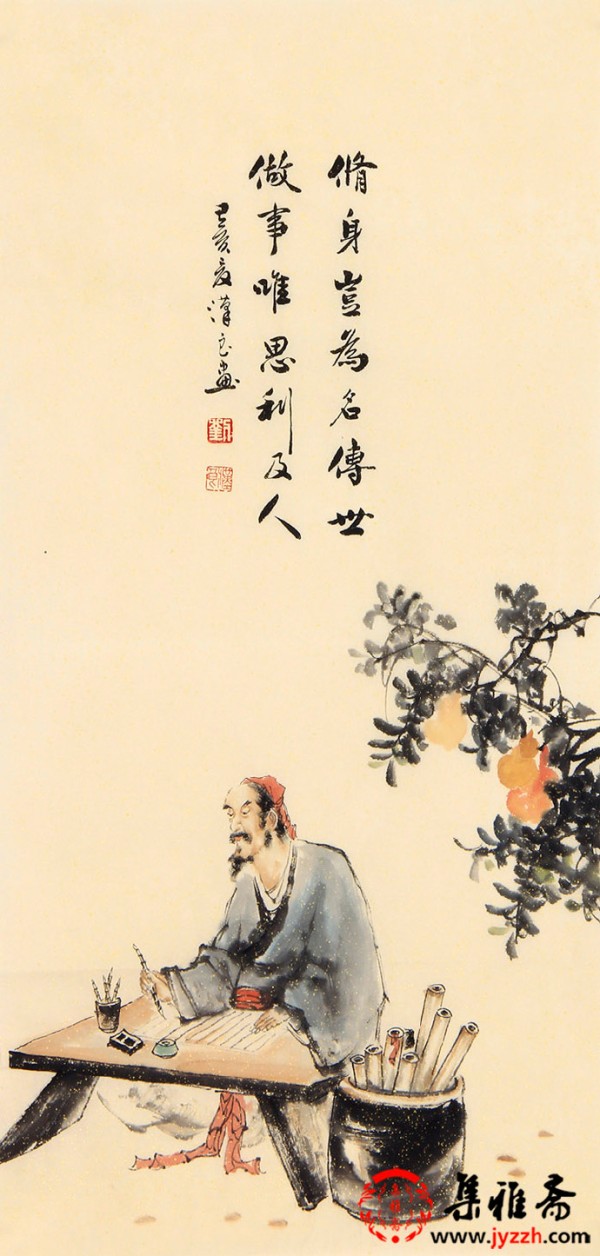 脩身豈為名傳世
做事唯思利及人
己亥夏漢良畫
劉
集雅斋
www.jyzzh.com